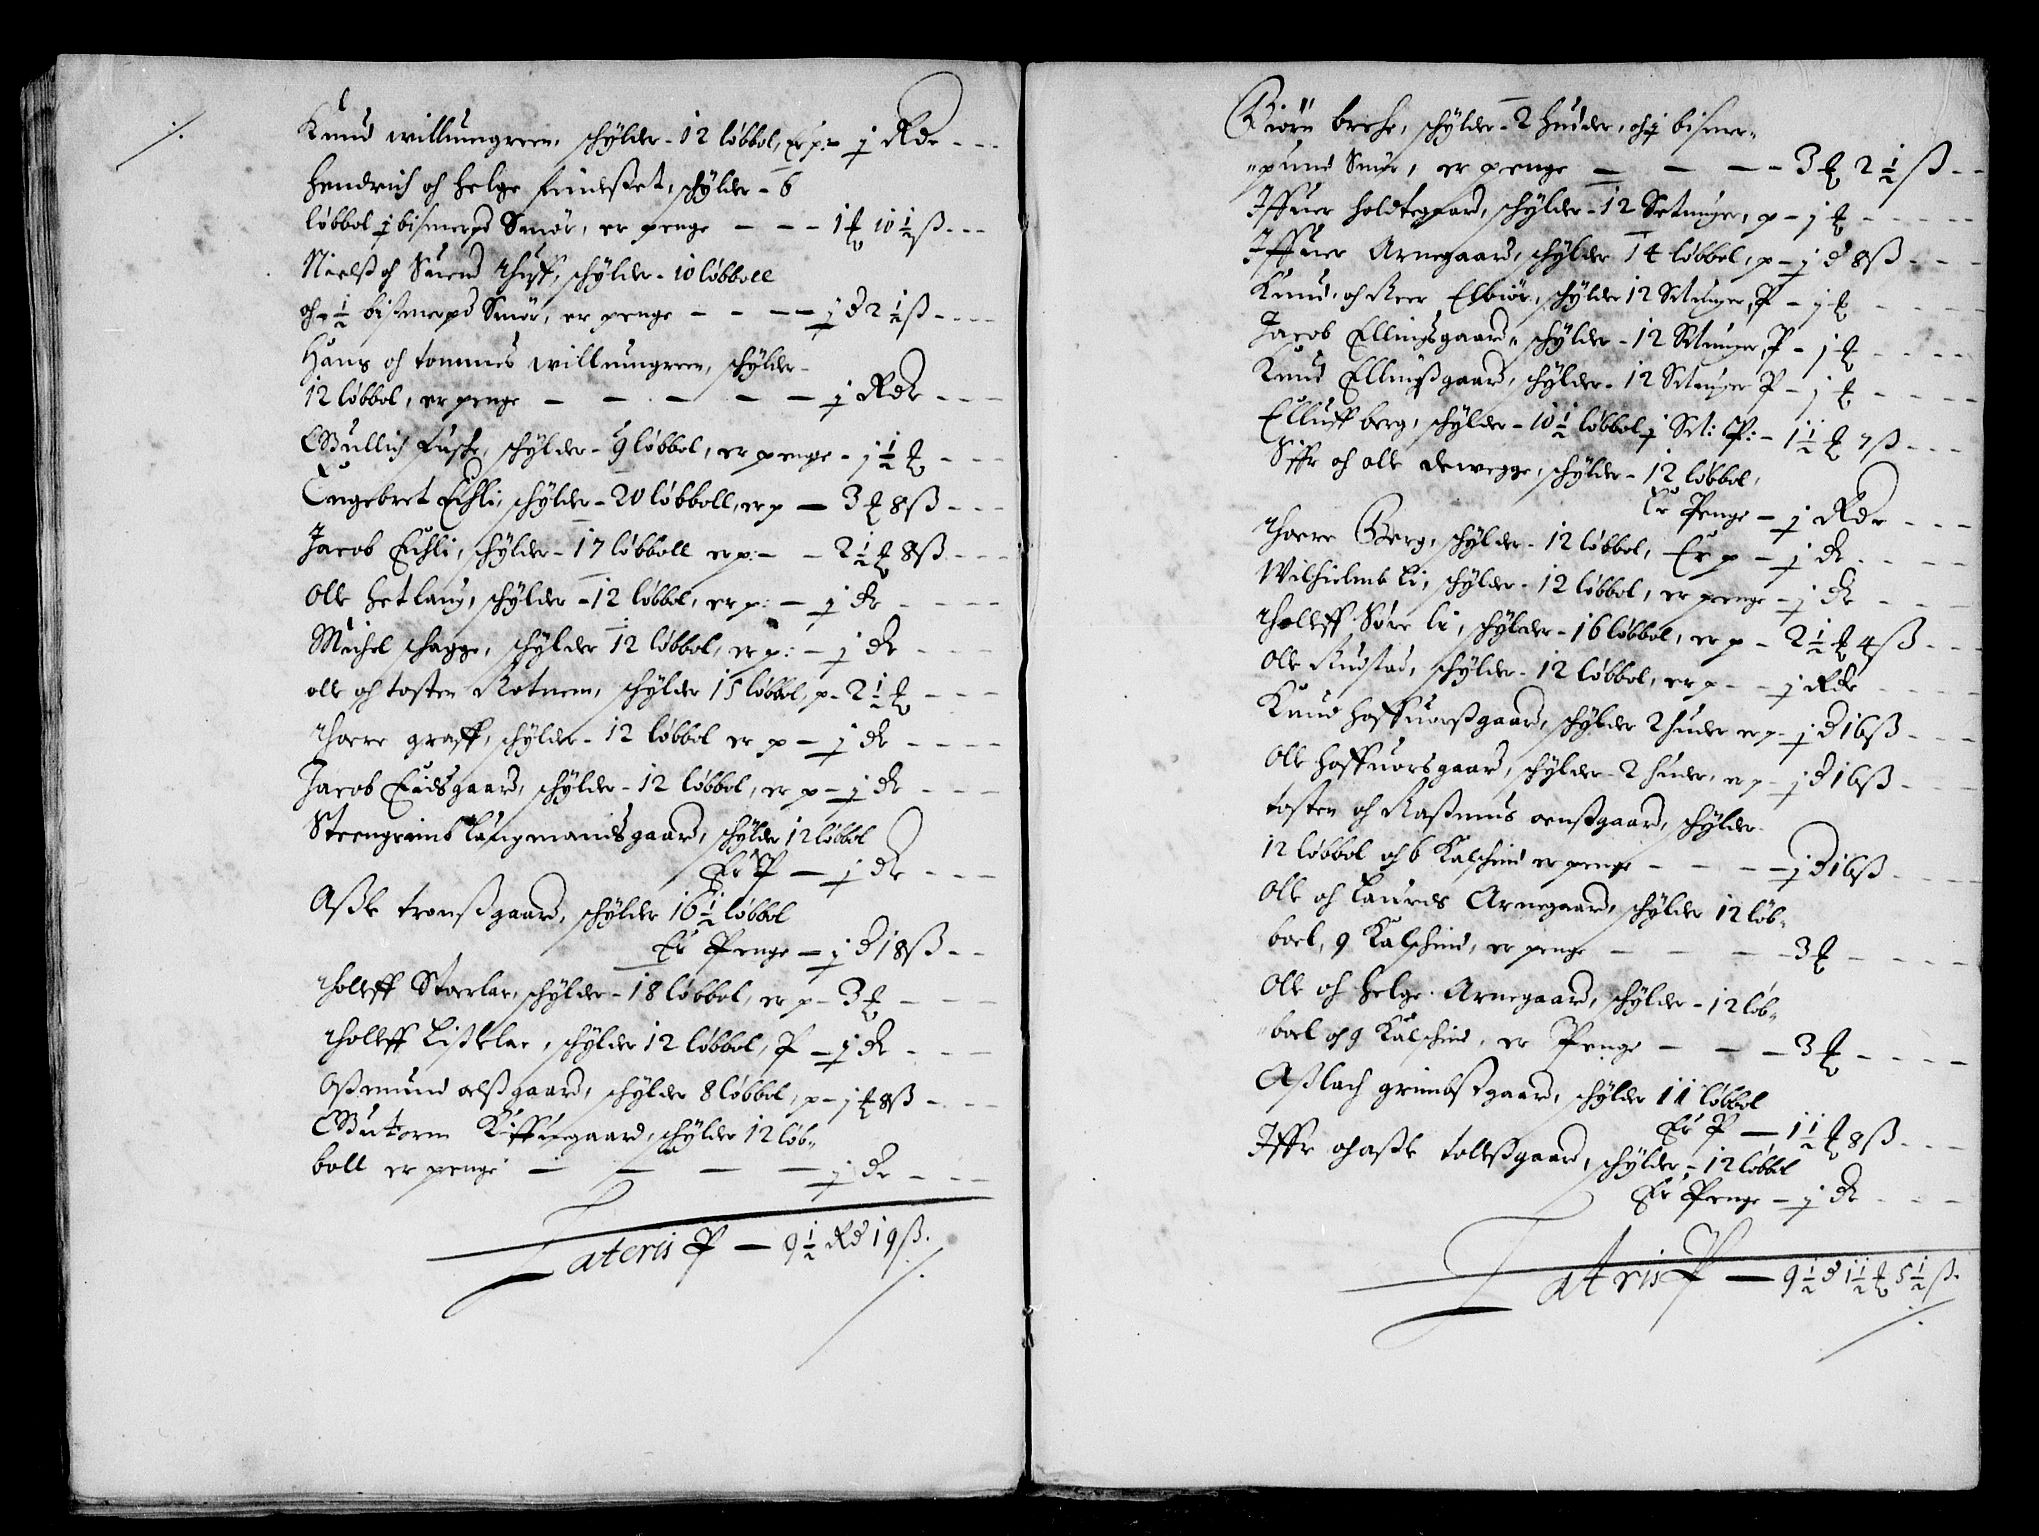 Knud willumgreen, schylder - 12 løbbol, Er p: - j Rdr - - -
Hendrich och Helge fundeset, schylder - 6
løbbol j bismerpd Smør, er penge - - - 1 ₶ 10 ½ ß - - -
Nielß och Suend thuff, schylder - 10 løbboll
och - ½ bismerpd Smør, er penge - - - - j d 2 ½ ß - - - -
Hans och tommes willumgreen, schylder -
12 løbbol, er penge - - - - - j Rdr - - -
Gullich fuske, schylder - 9 løbbol, er penge - j ½ ₶ - - -
Engebret Eichli, schylder - 20 løbboll, er p - 3 ₶ 8 ß - - -
Jacob Eichli, schylder - 17 løbboll er p: - - 2 ½ ₶ 8 ß - - -
Olle Hetland, schylder - 12 løbbol, er p: - j dr - - - -
Michel schagge, schylder 12 løbbol, er p: - j dr - - - -
olle och tosten Rotnem, schylder 15 løbbol, p - 2 ½ ₶ - - -
thoere graff, schylder - 12 løbbol er p - j dr - - - -
Jacob Eidsgaard, schylder - 12 løbbol, er p - j dr - - -
Steengrimb Langmandsgaard, schylder 12 løbbol
Er P - j dr - - -
Aßle tronßgaard, schylder 16 ½ løbbol
Er Penge - j d 18 ß - -
tholeff Stoerlae, schylder - 18 løbbol, er p - 3 ₶ - - -
tholeff Lißlelae, schylder 12 løbbol, P - j dr - - -
Aßmund oelßgaard, schylder 8 løbbol, p - j ₶ 8 ß - - -
Gutorm Kiffuegaard, schylder 12 løb-
boll er penge - - - - j dr - - -
Lateris P - 9 ½ Rd 19 ß.
Biørn breche, schylder - 2 huder, och j bismer-
pund Smør, er penge - - - - 3 ₶ 2 ½ ß - -
Iffuer holdtegaard, schylder - 12 Setunger, p - j ₶ - - - - -
Iffuer Arnegaard, schylder 14 løbbol, p - j d 8 ß - - -
Knud, och Peer Elbiør, schylder 12 Setunger, P - j ₶ - - - -
Jacob Ellingsgaard, schylder - 12 Setunger, P - j ₶ - - - -
Knud Ellingßgaard, schylder - 12 Setunger P - j ₶ - - - -
Elluff berg, schylder - 10 ½ løbbol j Set: P: - 1 ½ ₶ 7 ß - - -
Siffr och olle dewegge, schylder - 12 løbbol,
Er Penge - j Rdr - - -
thoere Berg, schylder - 12 løbbol, Er p - j dr - - - -
Wilhielmb Li, schylder - 12 løbbol, er penge - j dr - - -
tholeff Søre li, schylder - 16 løbbol, er p - 2 ½ ₶ 4 ß - - -
Olle Rudstad, schylder - 12 løbbol, er p - - j Rdr - - - -
Knud hoffuorßgaard, schylder 2 huder er p - j d 16 ß - - -
Olle hoffuorsgaard, schylder - 2 huder, er p - j d 16 ß - - -
tosten och Raßmus oenßgaard, schylder -
12 løbbol och 6 Kalschind er penge - - - - j d 16 ß - - -
Olle och Laurds Arnegaard, schylder 12 løb-
boel, 9 Kalschind, er penge - - - - 3 ₶ - - - -
Olle och helge Arnegaard, schylder - 12 løb-
boel och 9 Kalschind, er Penge - - - 3 ₶ - - - -
Aßlach grimbßgaard, schylder 11 løbbol
Er P - 1 ½ ₶ 8 ß - - -
Iffr och aßle tolleßgaard, schylder - 12 løbbol
Er Penge - j dr - - -
Lateris P - 9 ½ d 1 ½ ₶ 5 ½ ß.